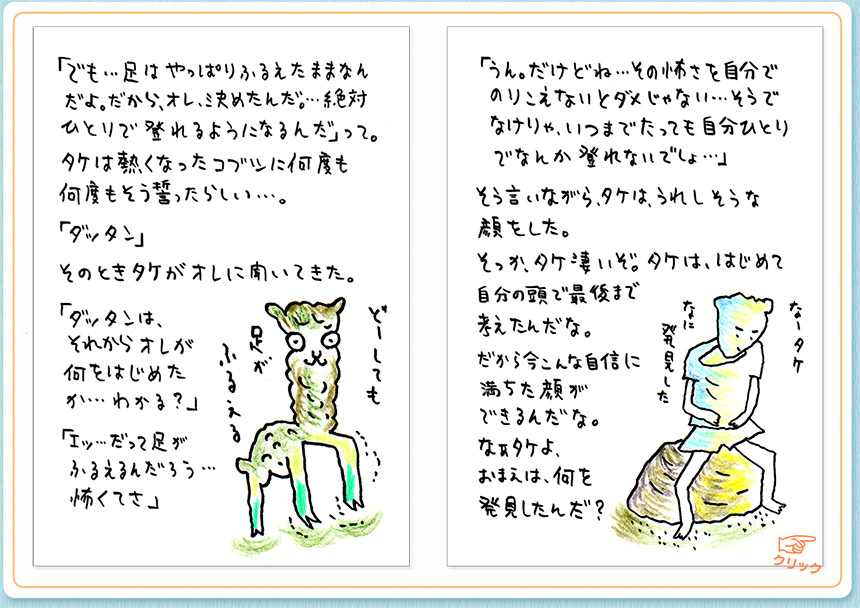 「でも…足は やっぱりふるえたままなん
だよ。だから、オレ、決めたんだ。…絶対
ひとりで 登れるようになるんだ」って。
タケは熱くなったコブシに何度も
何度もそう誓ったらしい…。
「ダッタン」
そのときタケがオレに聞いてきた。
「ダッタンは、
それからオレが
何をはじめた
か…わかる？」
「エッ…だって足が
ふるえるんだろう…
怖くてさ」
どーしても
足が
ふるえる
「うん。だけどね…その怖さを自分で
のりこえないとダメじゃない…そうで
なけりゃ、いつまでたっても自分ひとり
でなんか 登れないでしょ…」
そう言いながら、タケは、うれしそうな
顔をした。
そっか、タケ凄いぞ。タケは、はじめて
自分の頭で最後まで
考えたんだな。
だから今こんな自信に
満ちた顔が
できるんだな。
なぁタケよ、
おまえは、何を
発見したんだ？
なータケ
なに
発見した
クリック